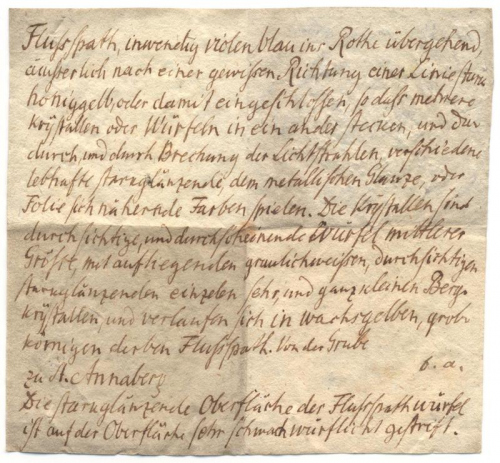 Flussspath, inwendig violen blau ins Rothe übergehend,
äusserlich nach einer gewissen Richtung einer Linie stark
honiggelb, oder damit eingeschlossen, so dass mehrere
krystallen oder Würfeln in ein ander stecken, und da
durch, und durch Brechung der Lichtstrahlen, verschiedene
lebhafte starkglänzende, dem metallischen Glanze, oder
Folie sich nähernde Farben spielen. Die Krystallen sind
durchsichtige, und durchscheinende Würfel mittlerer
Grösse, mit aufliegenden graulichweißen, durchsichtigen
starkglänzenden einzelen sehr, und ganz kleinen Berg-
krystallen, und verlaufen sich in wachsgelben, grob-
körnigen derben Flussspath. Von der Grube
6. a.
zu St. Annaberg
Die starkglänzende Oberfläche des Flussspathwürfel
ist auf der Oberfläche sehr schwach würflicht gestreift.